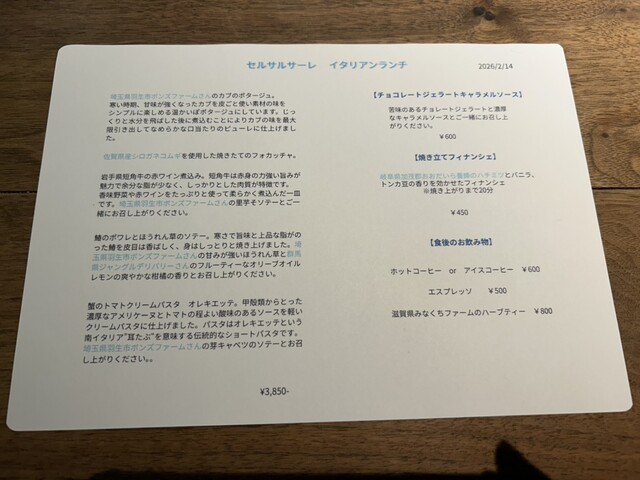 セルサルサーレ　イタリアンランチ
2026/2/14
埼玉県羽生市ポンズファームさんのカブのポタージュ。
寒い時期、甘味が強くなったカブを皮ごと使い素材の味を
シンプルに楽しめる温かいポタージュにしています。じっ
くりと水分を飛ばした後に煮込むことによりカブの味を最大
限引き出してなめらかな口当たりのピューレに仕上げまし
た。
佐賀県産シロガネコムギを使用した焼きたてのフォカッチャ。
岩手県短角牛の赤ワイン煮込み。短角牛は赤身の力強い旨みが
魅力で余分な脂が少なく、しっかりとした肉質が特徴です。
香味野菜や赤ワインをたっぷりと使って柔らかく煮込んだ一皿
です。埼玉県羽生市ポンズファームさんの里芋ソテーとご一
緒にお召し上がりください。
鰆のポワレとほうれん草のソテー。寒さで旨味と上品な脂がの
った鰆を皮目は香ばしく、身はしっとりと焼き上げました。埼
玉県羽生市ポンズファームさんの甘みが強いほうれん草と群馬
県ジャングルデリバリーさんのフルーティーなオリーブオイル
レモンの爽やかな柑橘の香りとお召し上がりください。
蟹のトマトクリームパスタ　オレキエッテ。甲殻類からとった
濃厚なアメリケーヌとトマトの程よい酸味のあるソースを軽い
クリームパスタに仕上げました。パスタはオレキエッテという
南イタリア"耳たぶ"を意味する伝統的なショートパスタです。
埼玉県羽生市ポンズファームさんの芽キャベツのソテーとお召
し上がりください。。
¥3,850-
【チョコレートジェラートキャラメルソース】
苦味のあるチョコレートジェラートと濃厚
なキャラメルソースとご一緒にお召し上
がりください。
¥600
【焼き立てフィナンシェ】
岐阜県加茂郡おおだいら養蜂のハチミツとバニラ、
トンカ豆の香りを効かせたフィナンシェ
※焼き上がりまで20分
¥450
【食後のお飲み物】
ホットコーヒー　or　アイスコーヒー　¥600
エスプレッソ　　¥500
滋賀県みなくちファームのハーブティー　¥800